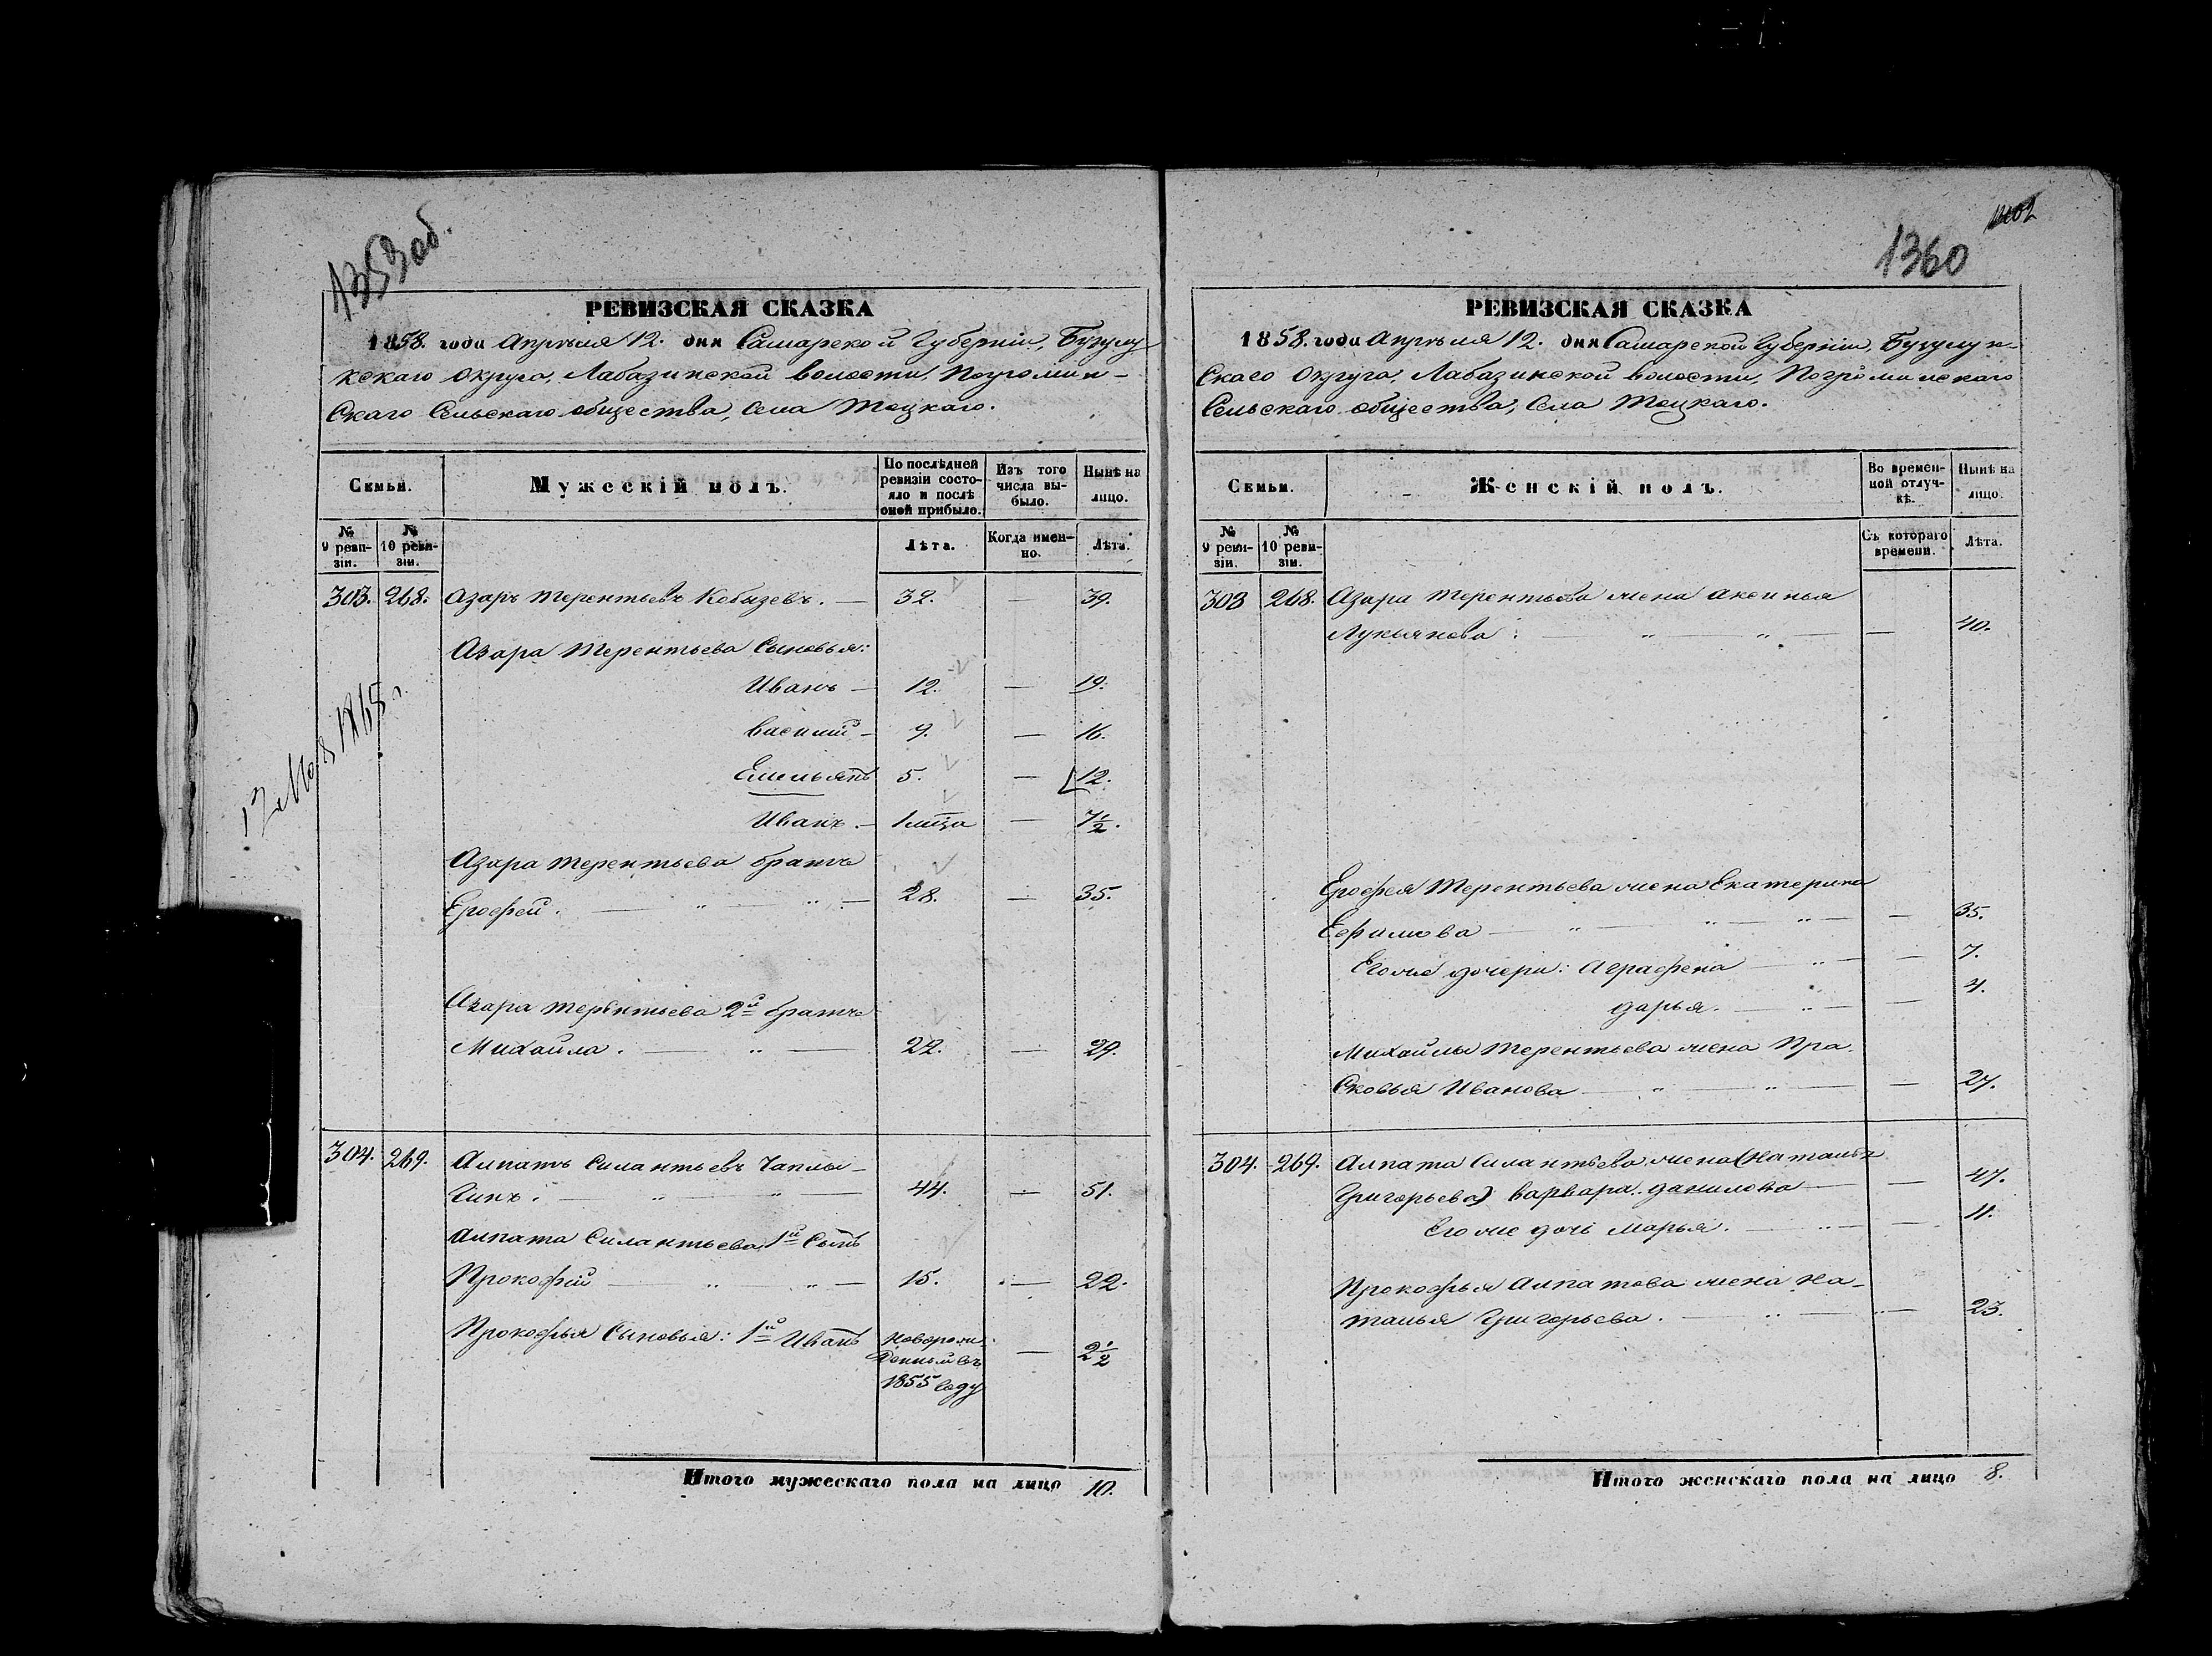 1353об.
РЕВИЗСКАЯ СКАЗКА
1858. года Апрѣля 12. дня Самарской Губерніи, Бузулу
кскаго Округа, Лабазинской волости, Погромин-
скаго Сельскаго общества, Села Тоцкаго.
Семьи.
Мужескій полъ.
По послѣдней ревизіи состояло и послѣ оной прибыло.
Изъ того числа выбыло.
Нынѣ на лицо.
№ 9 ревизіи.
№ 10 ревизіи.
Лѣта.
Когда именно.
Лѣта.
303. 268. Азаръ Терентьевъ Кобызевъ. — 32. — 39.
Азара Терентьева Сыновья:
Иванъ — 12. — 19.
Василий — 9. — 16.
Емельянъ 5. — 12.
Иванъ. — 1 мѣца — 7½.
Азара Терентьева братъ
Ерофей. — " — " — 28. — 35.
Азара Терентьева 2й братъ
Михайла. — " — 22. — 29.
304. 269. Алпатъ Силантьевъ Чаплы-
гинъ. — " — " — 44. — 51.
Алпата Силантьева 1й Сынъ
Прокофий — " — " — 15. — 22.
Прокофья Сыновья: 1й Иванъ новорож-
денный въ — 2½
1855 году
Итого мужескаго пола на лицо 10.
1360
РЕВИЗСКАЯ СКАЗКА
1858. года Апрѣля 12. дня Самарской Губерніи, Бузулук
скаго Округа, Лабазинской волости, Погроминскаго
Сельскаго общества, Села Тоцкаго.
Семьи.
Женскій полъ.
Во временной отлучкѣ.
Нынѣ на лицо.
№ 9 ревизіи.
№ 10 ревизіи.
Съ котораго времени.
Лѣта.
303 268. Азара Терентьева жена Аксинья
Лукьянова: — " — " — — 40.
Ерофея Терентьева жена Екатерина
Ефимова — " — " — " — — 35.
Его же дочери: Аграфена — " — — 7.
Дарья. — " — — 4.
Михайлы Терентьева жена Пра-
сковья Иванова — " — " — — 27.
304. 269. Алпата Силантьева жена (Наталья
Григорьева) Варвара Данилова — — 47.
Его же дочь Марья. — " — — 11.
Прокофья Алпатова жена На-
талья Григорьева. — " — — 23.
Итого женскаго пола на лицо 8.